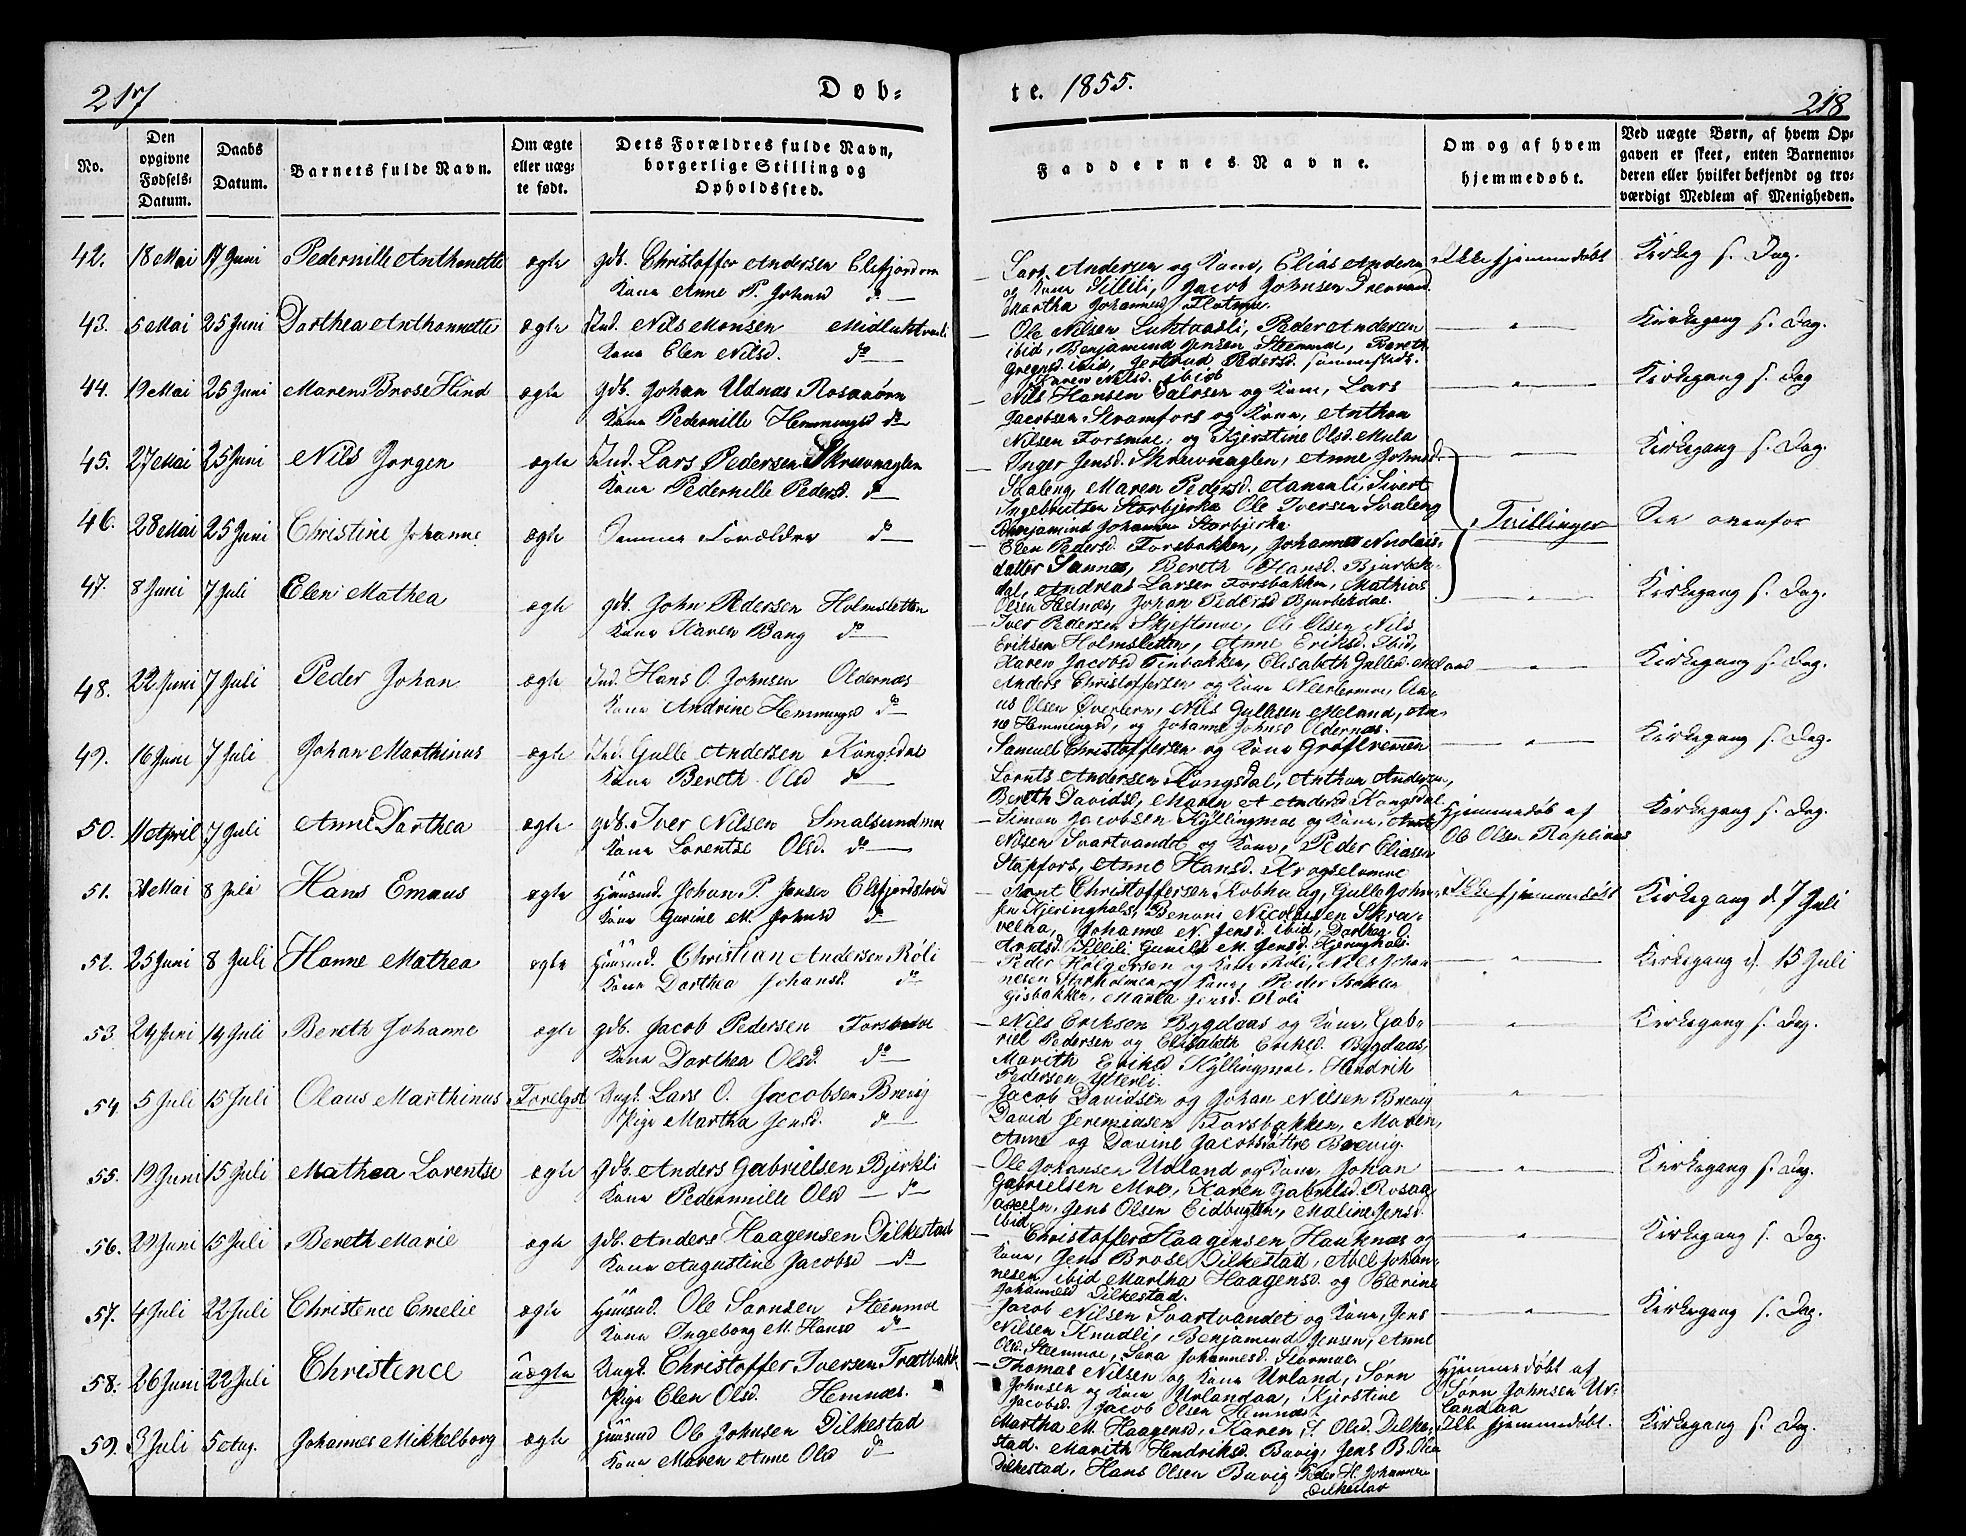 217
Döb-
No.
Den opgivne Födsels-Datum.
Daabs Datum.
Barnets fulde Navn.
Om ægte eller uægte födt.
Dets Forældres fulde Navn, borgerlige Stilling og Opholdssted.
42. 18 Mai 17 Juni Pedernille Anthonette ægte Gdb. Christoffer Andersen Elsfjordmo
Kone Anne P. Johnsd do
43. 5 Mai 25 Juni Dorthea Anthonnette ægte Ind. Nils Monsen Midluktvasli
Kone Elen Nilsd. do
44. 19 Mai 25 Juni Maren Brose Hind ægte Gdb. Johan Udnæs Rosaaørn
Kone Pedernille Hemmingsd do
45. 27 Mai 25 Juni Nils Jørgen ægte Ind. Lars Pedersen Skruvnaglen
Kone Pedernille Pedersd. do
46. 28 Mai 25 Juni Christine Johanne ægte Samme Forældre do
47. 8 Juni 7 Juli Elen Mathea ægte gdb. John Pedersen Holmsletten
Kone Karen Bang do
48. 22 Juni 7 Juli Peder Johan ægte Ind. Hans O. Johnsen Oldernæs
Kone Andrine Hemmingsd do
49. 16 Juni 7 Juli Johan Marthinus ægte Ind. Gulle Andersen Kongsdal
Kone Bereth Olsd do
50. 11 April 7 Juli Anne Dorthea ægte gdb. Iver Nilsen Smalsundmoe
Kone Lorentse Olsd. do
51. 31 Mai 8 Juli Hans Emaus ægte Huusmd. Johan P. Jensen Elsfjordstrand
Kone Gurine M. Johnsd do
52. 25 Juni 8 Juli Hanne Mathea ægte Huusmd. Christian Andersen Röli
Kone Dorthea Johansd. do
53. 24 Juni 14 Juli Bereth Johanne ægte gdb. Jacob Pedersen Forsmoe
Kone Dorthea Olsd. do
54. 5 Juli 15 Juli Olaus Marthinus Forelgst Ungk. Lars O. Jacobsen Brevig
Pige Martha Jensd. do
55. 19 Juni 15 Juli Mathea Lorentse ægte Gdb. Anders Gabrielsen Björkli
Kone Pedernnille Olsd do
56. 24 Juni 15 Juli Bereth Marie ægte Gdb. Anders Haagensen Dilkestad
Kone Augustine Jacobsd do
57. 4 Juli 22 Juli Christence Emelie ægte Huusmd. Ole Sörnsen Steenmoe
Kone Ingeborg M. Hansd do
58. 26 Juni 22 Juli Christence uægte Ungk. Christoffer Iversen Trætbakk
Pige Elen Olsd. Hemnæs.
59. 3 Juli 5 Aug. Johannes Mikkelborg ægte Huusmd Ole Johnsen Dilkestad
Kone Maren Anne Olsd do
te. 1855.
218
Faddernes Navne.
Om og af hvem hjemmedöbt.
Ved uægte Børn, af hvem Opgaven er skeet, enten Barnemoderen eller hvilket bekjendt og troværdigt Medlem af Menigheden.
Lars Andersen og Kone, Elias Andersen
og Kone Lillili, Jacob Johnsen
Martha Johannesd Flotmoe.
Ikke hjemmedöbt
Kirkeg s. Dag.
Ole Nilsen Luktvasli, Peder Andersen
ibid, Benjamind Jensen Steenmoe, Bereth
Gregersd. ibid, Gertrud Pedersd. sammesteds.
Karen Nilsd. ibid
Kirkegang s. Dag.
Nils Hansen og Kone, Lars
Jacobsen Skramfors og Kone, Anthon
Nilsen Forsmoe, og Kjerstine Olsd. Mula
Kirkegang s. Dag
Inger Jensd. Skruvnaglen, Anne Johnsd.
Svaleng, Maren Pedersd. Aanesli, Sivert
Ingebrigtsen Storbjerka Ole Iversen Svaleng
Benjamind Johannsen Storbjerka
Kirkegang s. Dag.
Tvillinger
Elen Pedersd. Forsbakken, Johanna Nicolais-
datter Sannæs, Bereth Hansd. Bjurbek-
dal, Andreas Larsen Forsbakken, Mathias
Olsen Hestnæs, Johan Pedersd Bjurbekdal.
See ovenfor
Iver Pedersen Skjestmoe, Ole Olsen, Nils
Eriksen Holmsletten, Anne Eriksd. Ibid,
Karen Jacobsd Finbakken, Elisabeth Gullesd. Meland
Kirkegang s. Dag.
Anders Christoffersen og Kone Neerlermoe, Ola-
us Olsen Øverleir, Nils Gullesen Meland, An-
ne Hemmingsd, og Johanne Johnsd Oldernæs.
Kirkegang s. Dag.
Samuel Christoffersen og Kone Grøftremmen
Lornts Andersen Kongsdal, Anthon Andersen,
Bereth Davidsd, Maren A Andersd Kongsdal
Kirkegang s. Dag.
Simon Jacobsen Kyllingmoe og Kone, Arnt
Nilsen Svartvandet og Kone, Peder Eliasen
Stapfors, Anne Hansd. Krogselvmoe
Hjemmedöb af
Ole Olsen Raplinæs
Kirkegang s. Dag.
Arnt Christoffersen Kobhaug, Gulle John-
sen Kjeringhals, Benoni Nicolaisen Skra-
velna, Johanne N. Jensd. ibid, Dorthea O.
Arntsd. Lillili Gunild M. Jensd. Kjeringhals.
Ikke hjemmedöbt
Kirkegang d. 7 Juli
Peder Holgersen og Kone Röli, Nils Johan-
nesen Storholmen og Kone, Peder Isaksen
Gisbakken, Marta Jensd. Röli
Kirkegang d. 15 Juli
Nils Erikson Bygdaas og Kone, Gab-
riel Pedersen og Elisabeth Eriksd. Bygdaas,
Marith Eriksd Kyllingmoe, Hendrik
Pedersen Ytterli.
Kirkegang s. Dag.
Jacob Davidsen og Johan Nilsen Brevig
David Jeremiasen Forsbakken, Maren,
Anne og Davine Jacobsdöttre Brevig.
Ole Johansen Urland og Kone, Johan
Gabrielsen Moe, Karen Gabrielsd. Rosaa-
axeln, Jens Olsen Eidbugten, Maline Jensd.
ibid
Kirkegang s. Dag.
Christoffer Haagensen Hauknæs og
Kone, Jens Brose Dilkestad, Abel Johan-
nesen ibid Martha Haagensd. og Elerine
Johannesd Dilkestad.
Kirkegang s. Dag.
Jacob Nilsen Svartvandet og Kone, Jens
Nilsen Knudli, Benjamind Jensen, Anne
Olsd. Steenmoe, Sara Johannesd. Stormoe.
Kirkegang s. Dag.
Thomas Nilsen og Kone Urland, Sørn
Johnsen og Kone Urlandaa, Kjerstine
Jacobsd. Jacob Olsen Hemnæs
Hjemmedöbt af
Sørn Johnsen Ur-
landaa
Martha M. Haagensd, Karen J. Olsd. Dilke-
stad. Marith Hendriksd. Buvig, Jens B. Olsen
Dilkestad, Hans Olsen Buvig Peder H. Johannesen
Dilkestad
Ikke hjemmedöbt.
Kirkegang s. Dag.